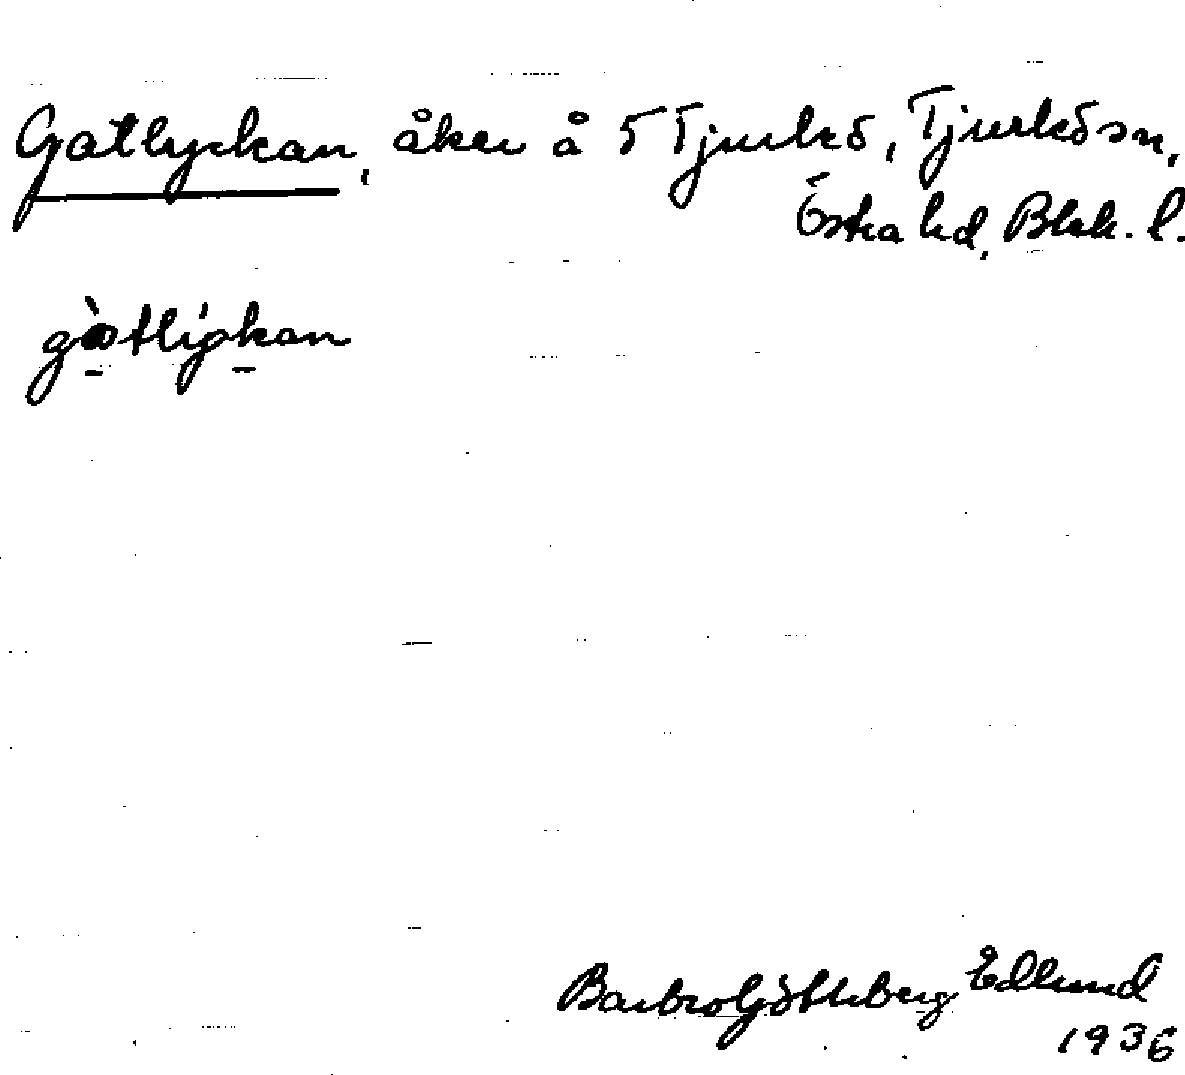 Gatlyckan, åker å 5 Tjurkö, Tjurkö sn,
Östra hd, Blek. l.
gàtlýkan
Barbro Götherberg Edlund
1936